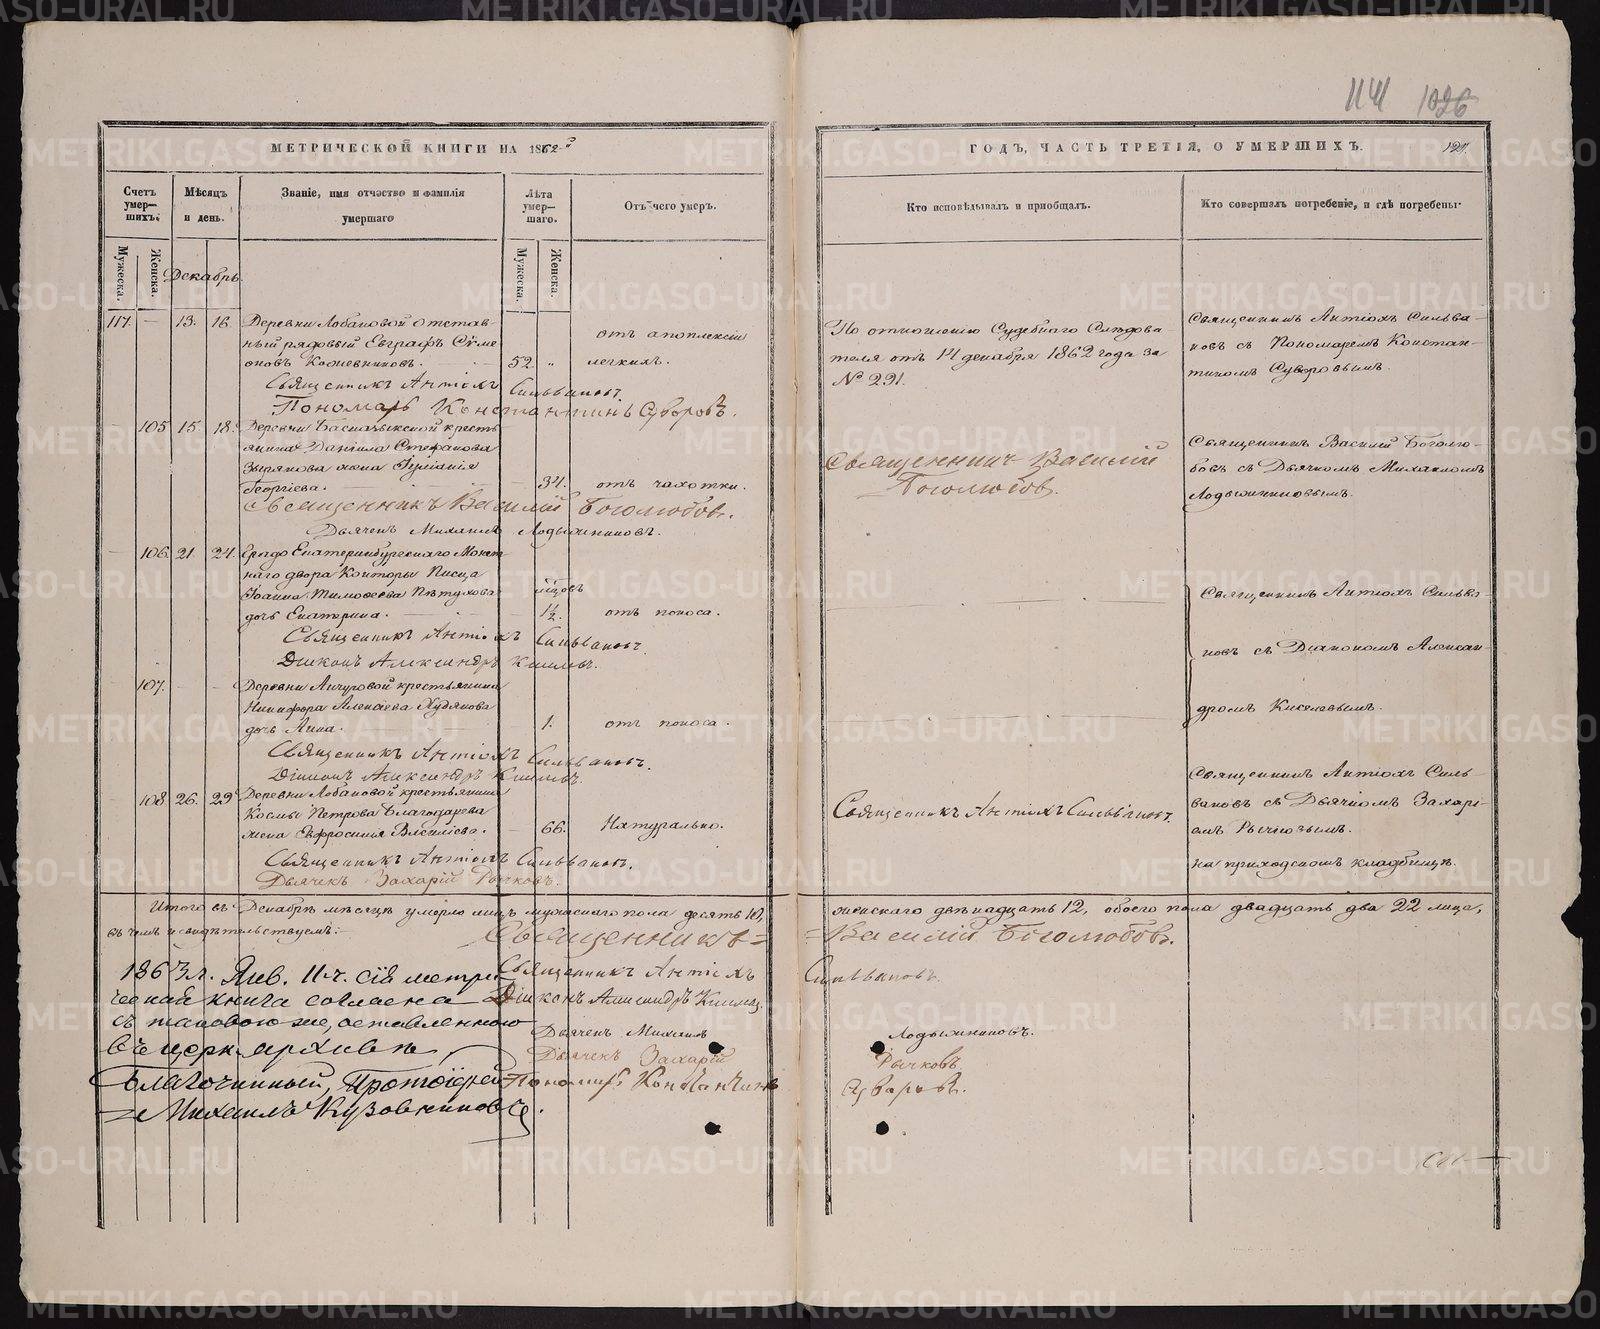 1141 1026
МЕТРИЧЕСКОЙ КНИГИ НА 1862-й
ГОДЪ, ЧАСТЬ ТРЕТІЯ, О УМЕРШИХЪ.
Счетъ умер-шихъ.
Мѣсяцъ и день.
Званіе, имя отчество и фамилія умершаго
Лѣта умер-шаго.
Отъ чего умеръ.
Кто исповѣдывалъ и пріобщалъ.
Кто совершалъ погребеніе, и гдѣ погребены.
Мужеска. Женска.
Декабрь.
Мужеска. Женска.
117. — 13. 16. Деревни Лобановой отстав-
ный рядовый Евграфъ Симе
оновъ Кожевниковъ. 52. „
отъ апоплексіи
легкихъ.
По отношенію Судебнаго Слѣдова
теля отъ 14 декабря 1862 года за
№ 291.
Священникъ Антіохъ Сильва-
новъ съ Пономаремъ Констан-
тиномъ Суворовымъ.
Священникъ Антіохъ Сильвановъ.
Пономарь Константинъ Суворовъ.
105. 15. 18. Деревни крестья-
янина Даніила Стефанова
Зырянова жена Іуліанія
Георгіева. — 34. отъ чахотки.
Священникъ Василій
Боголюбовъ.
Священникъ Василій Боголю-
бовъ съ Дьячкомъ Михаиломъ
Лодыжниковымъ.
Священникъ Василій Боголюбовъ.
Дьячекъ Михаилъ Лодыжниковъ.
106. 21. 24. Града Екатеринбургскаго Монет
наго двора Конторы Писца
Іоанна Тимофеева Пѣтухова
дочь Екатерина. 1½. отъ поноса.
Священникъ Антіохъ Сильва-
новъ съ Діакономъ Алексан-
дромъ Киселевымъ.
Священникъ Антіохъ Сильвановъ.
Діаконъ Александръ Киселевъ.
107. — — Деревни крестьянина
Никифора Алексѣева Худякова
дочь Анна. 1. отъ поноса.
Священникъ Антіохъ Сильвановъ.
Діаконъ Александръ Киселевъ.
108. 26. 29 Деревни Лобановой крестьянина
Космы Петрова Благодарева
жена Евфросинія Василіева. — 66. Натурально.
Священникъ Антіохъ Сильвановъ.
Священникъ Антіохъ Силь-
вановъ съ Дьячкомъ Захарі-
емъ Рычковымъ.
на приходскомъ кладбищѣ.
Священникъ Антіохъ Сильвановъ.
Дьячекъ Захарій Рычковъ.
Итого въ Декабрѣ мѣсяцѣ умерло лицъ мужескаго пола десять 10, женскаго двѣнадцать 12, обоего пола двадцать два 22 лица,
въ чемъ и свидѣтельствуемъ:
Священникъ Василій Боголюбовъ.
Священникъ Антіохъ Сильвановъ
Діаконъ Александръ
Дьячекъ Михаилъ Лодыжниковъ.
Дьячекъ Захарій Рычковъ
Пономарь Константинъ Суворовъ.
1863 г. Янв. 11 ч. сія метри
ческая книга согласна
съ таковою же, оставленною
въ церк. архивѣ
Благочинный, Протоіерей
Михаилъ Кузовниковъ.